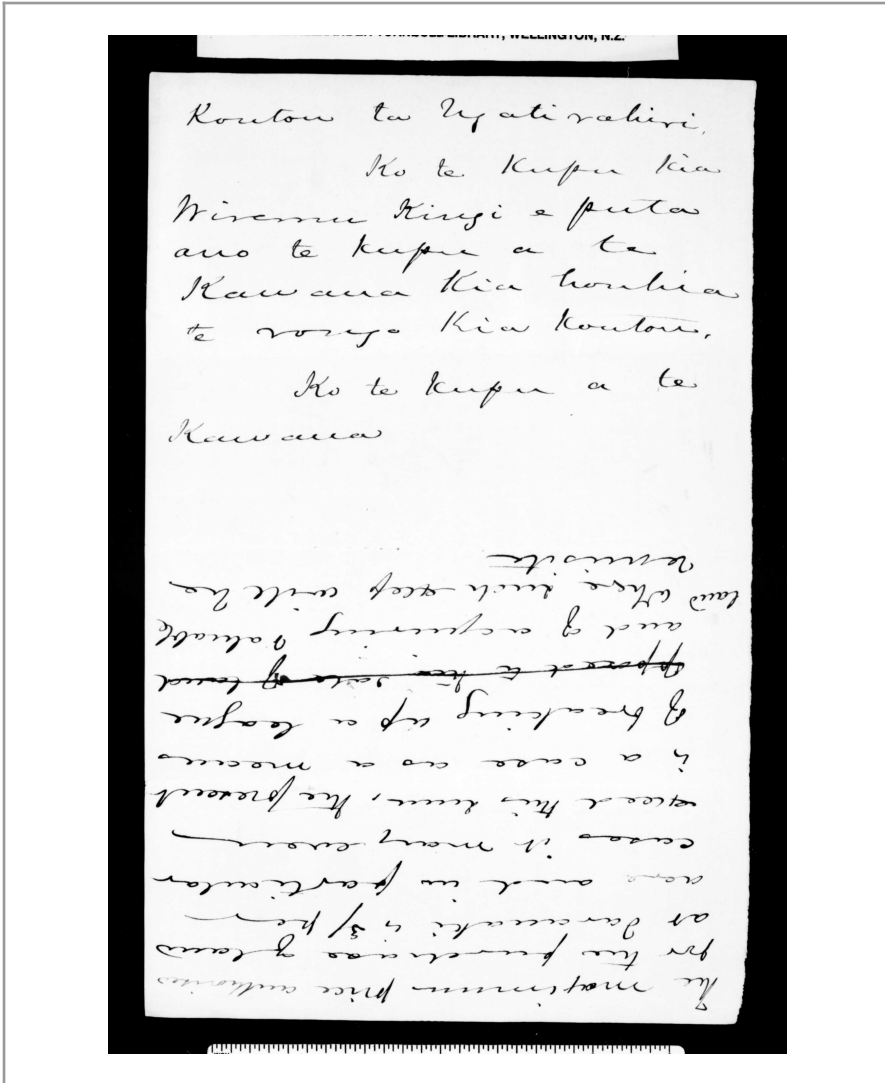 TURNBULL LIBRARY, WELLINGTON, N.Z.
Koutou ta Ngatirahiri.
Ko te Kupu Kia
Wiremu Kingi e puta
ano te kupu a te
Kawana Kia houhia
te rongo Kia Koutou.
Ko te kupu a te
Kawana
The maximum price authorised
for the purchase of land
at Taranaki is 3/ per
acre and in particular
cases it may even
exceed this sum, the present
is a case as a means
of breaking up a league
opposed to the sale of land
and of acquiring valuable
land where such step will be
requisite